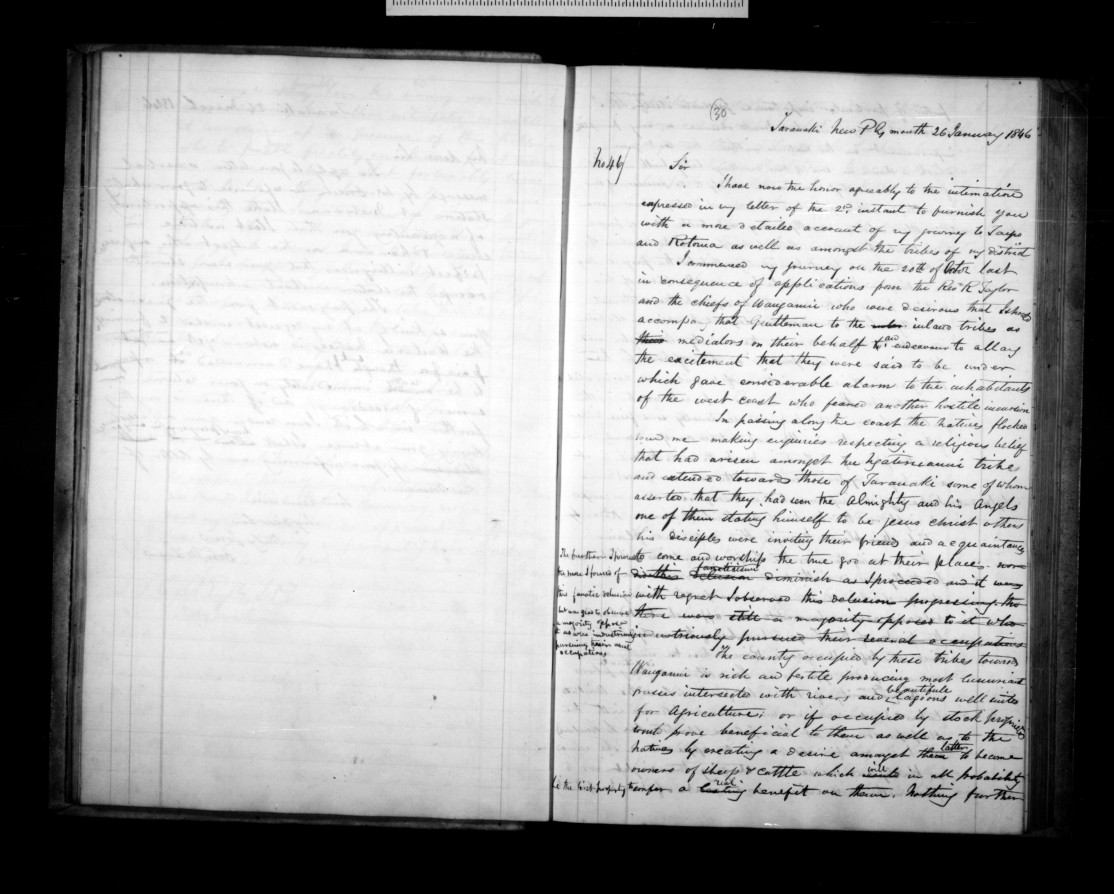 30
Taranaki New Plymouth 26 January 1846
No 46
Sir
I have now the honor agreeably to the intimation
expressed in my letter of the 2nd instant to furnish you
with a more detailed account of my journey to Taupo
and Rotorua as well as amongst the tribes of my district
I commenced my journey on the 20th of Octor last
in consequence of applications from the Revd R Taylor
and the chiefs of Wanganui who were desirous that I should
accompany that Gentleman to the inland tribes as
their mediators on their behalf and to endeavour to allay
the excitement that they were said to be under
which gave considerable alarm to the inhabitants
of the west coast who feared another hostile incursion
In passing along the coast the natives flocked
round me making enquiries respecting a religious belief
that had arisen amongst the Ngatiruanui tribe
and extended towards those of Taranaki some of whom
asserted that they had seen the Almighty and his Angels
one of them stating himself to be jesus christ others
his disciples were inviting their friends and acquaintances
to come and worship the true God at their place. nor
did this delusion fanaticism diminish as I proceeded and it was
with regret I observed this delusion progressing tho
there were still a majority opposed to it who
industriously pursued their several occupations
The further I proceeded
the more I found of
this fanatic delusion
but was glad to observe
a majority oppose
it as were industriously
pursuing their usual
occupations
The country occupied by these tribes towards
Wanganui is rich and fertile producing most luxuriant
grasses intersected with rivers and beautiful Lagoons well suited
for Agriculture; or if occupied by stock proprietors
would prove beneficial to them as well as to the
natives by creating a desire amongst them latter to become
owners of sheep & cattle which will in all probability
be the first property to confer a lasting real benefit on them. Nothing further